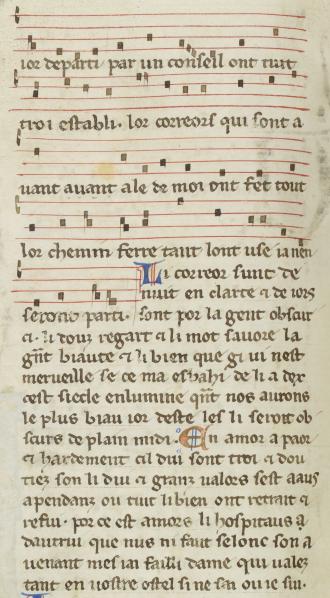 ior departi · par un conseil ont tuit
troi establi · lor correors qui sont a
uant auant ale de moi ont fet tout
lor chemin ferre tant lont use ia nen
Li correor sunt de
nuit en clarte ⁊ de iors
seront parti · sont por la gent obscur
ci · li douz regart ⁊ li mot sauore la
gñt biaute ⁊ li bien que gi ui nest
merueille se ce ma esbahi de li a dex
cest siecle enlumine qñt nos aurons
le plus biau ior deste les li seroit ob
scurs de plain midi · En amor a paor
⁊ hardement cil dui sont troi ⁊ dou
tiez son li dui ⁊ granz ualors sest a aus
apendanz ou tuit li bien ont retrait ⁊
refui · por ce est amors li hospitaus
dautrui que nus ni faut selonc son a
uenant mes iai failli dame qui ualez
tant en uostre ostel si ne sai ou ie sui ·